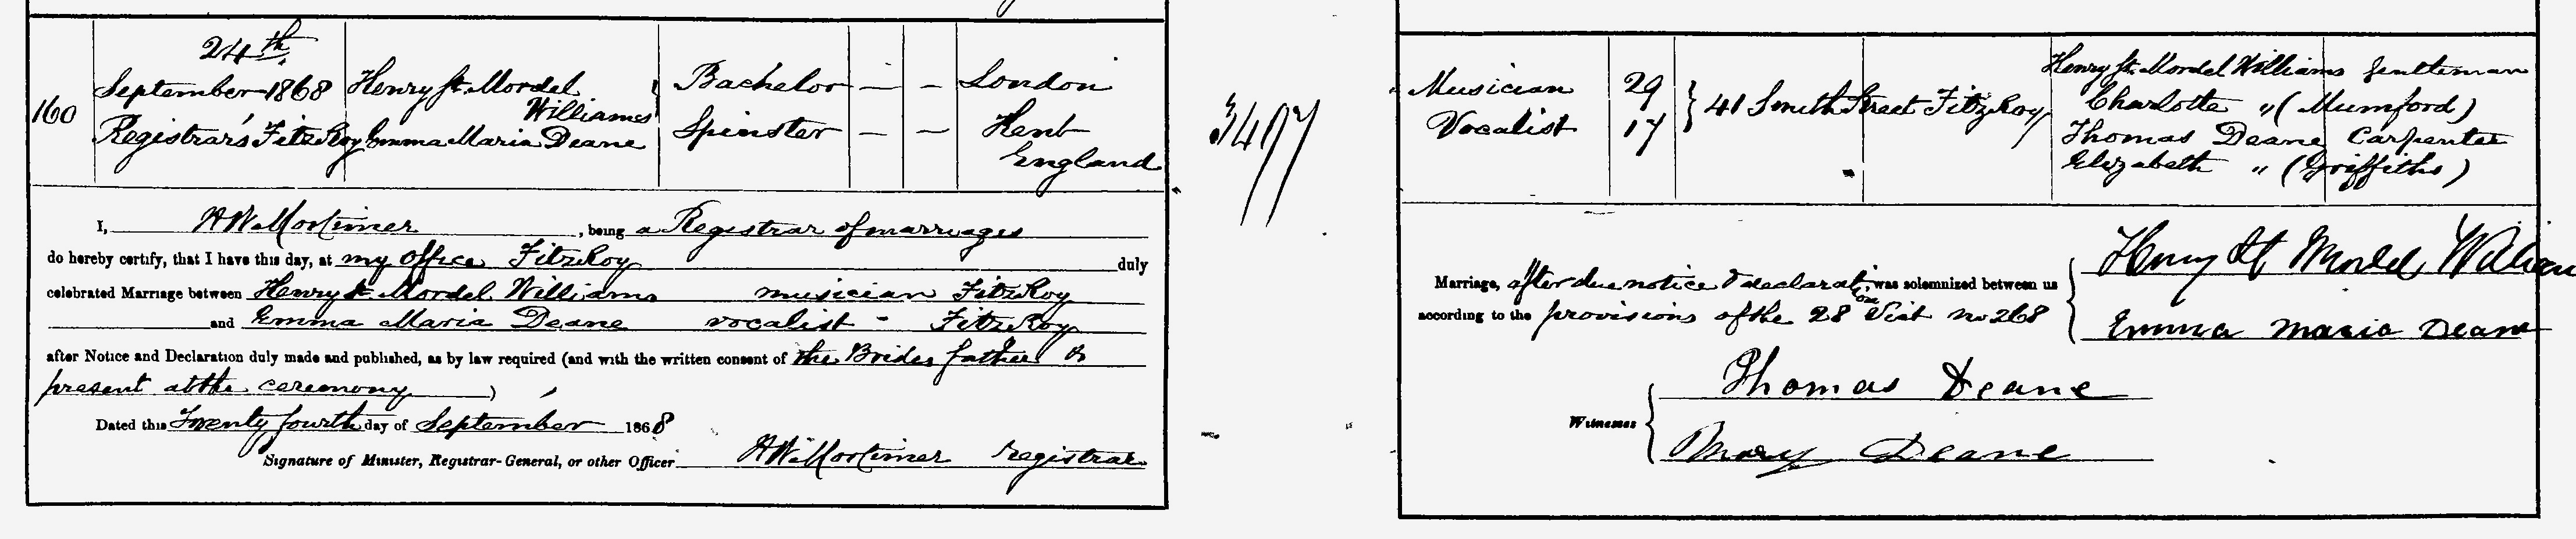 24th
160 September 1868 Henry St. Mordel Williams Bachelor — — London
Registrar's FitzRoy Emma Maria Deane Spinster — — Kent England
I, H W Mortimer, being a Registrar of marriages
do hereby certify, that I have this day, at my office FitzRoy duly
celebrated Marriage between Henry St. Mordel Williams musician FitzRoy
and Emma Maria Deane vocalist - FitzRoy
after Notice and Declaration duly made and published, as by law required (and with the written consent of the Brides father
present at the ceremony )
Dated this Twenty fourth day of September 1868
Signature of Minister, Registrar-General, or other Officer H W Mortimer registrar
3497
Musician 29 } 41 Smith Street FitzRoy Henry St. Mordel Williams Gentleman
Charlotte " (Mumford)
Vocalist 17 Thomas Deane Carpenter
Elizabeth " (Griffiths)
Marriage, after due notice & declaration was solemnized between us { Henry St Mordel William
according to the provisions of the 28 Vict no 268 Emma Maria Deane
Witnesses { Thomas Deane
Mary Deane